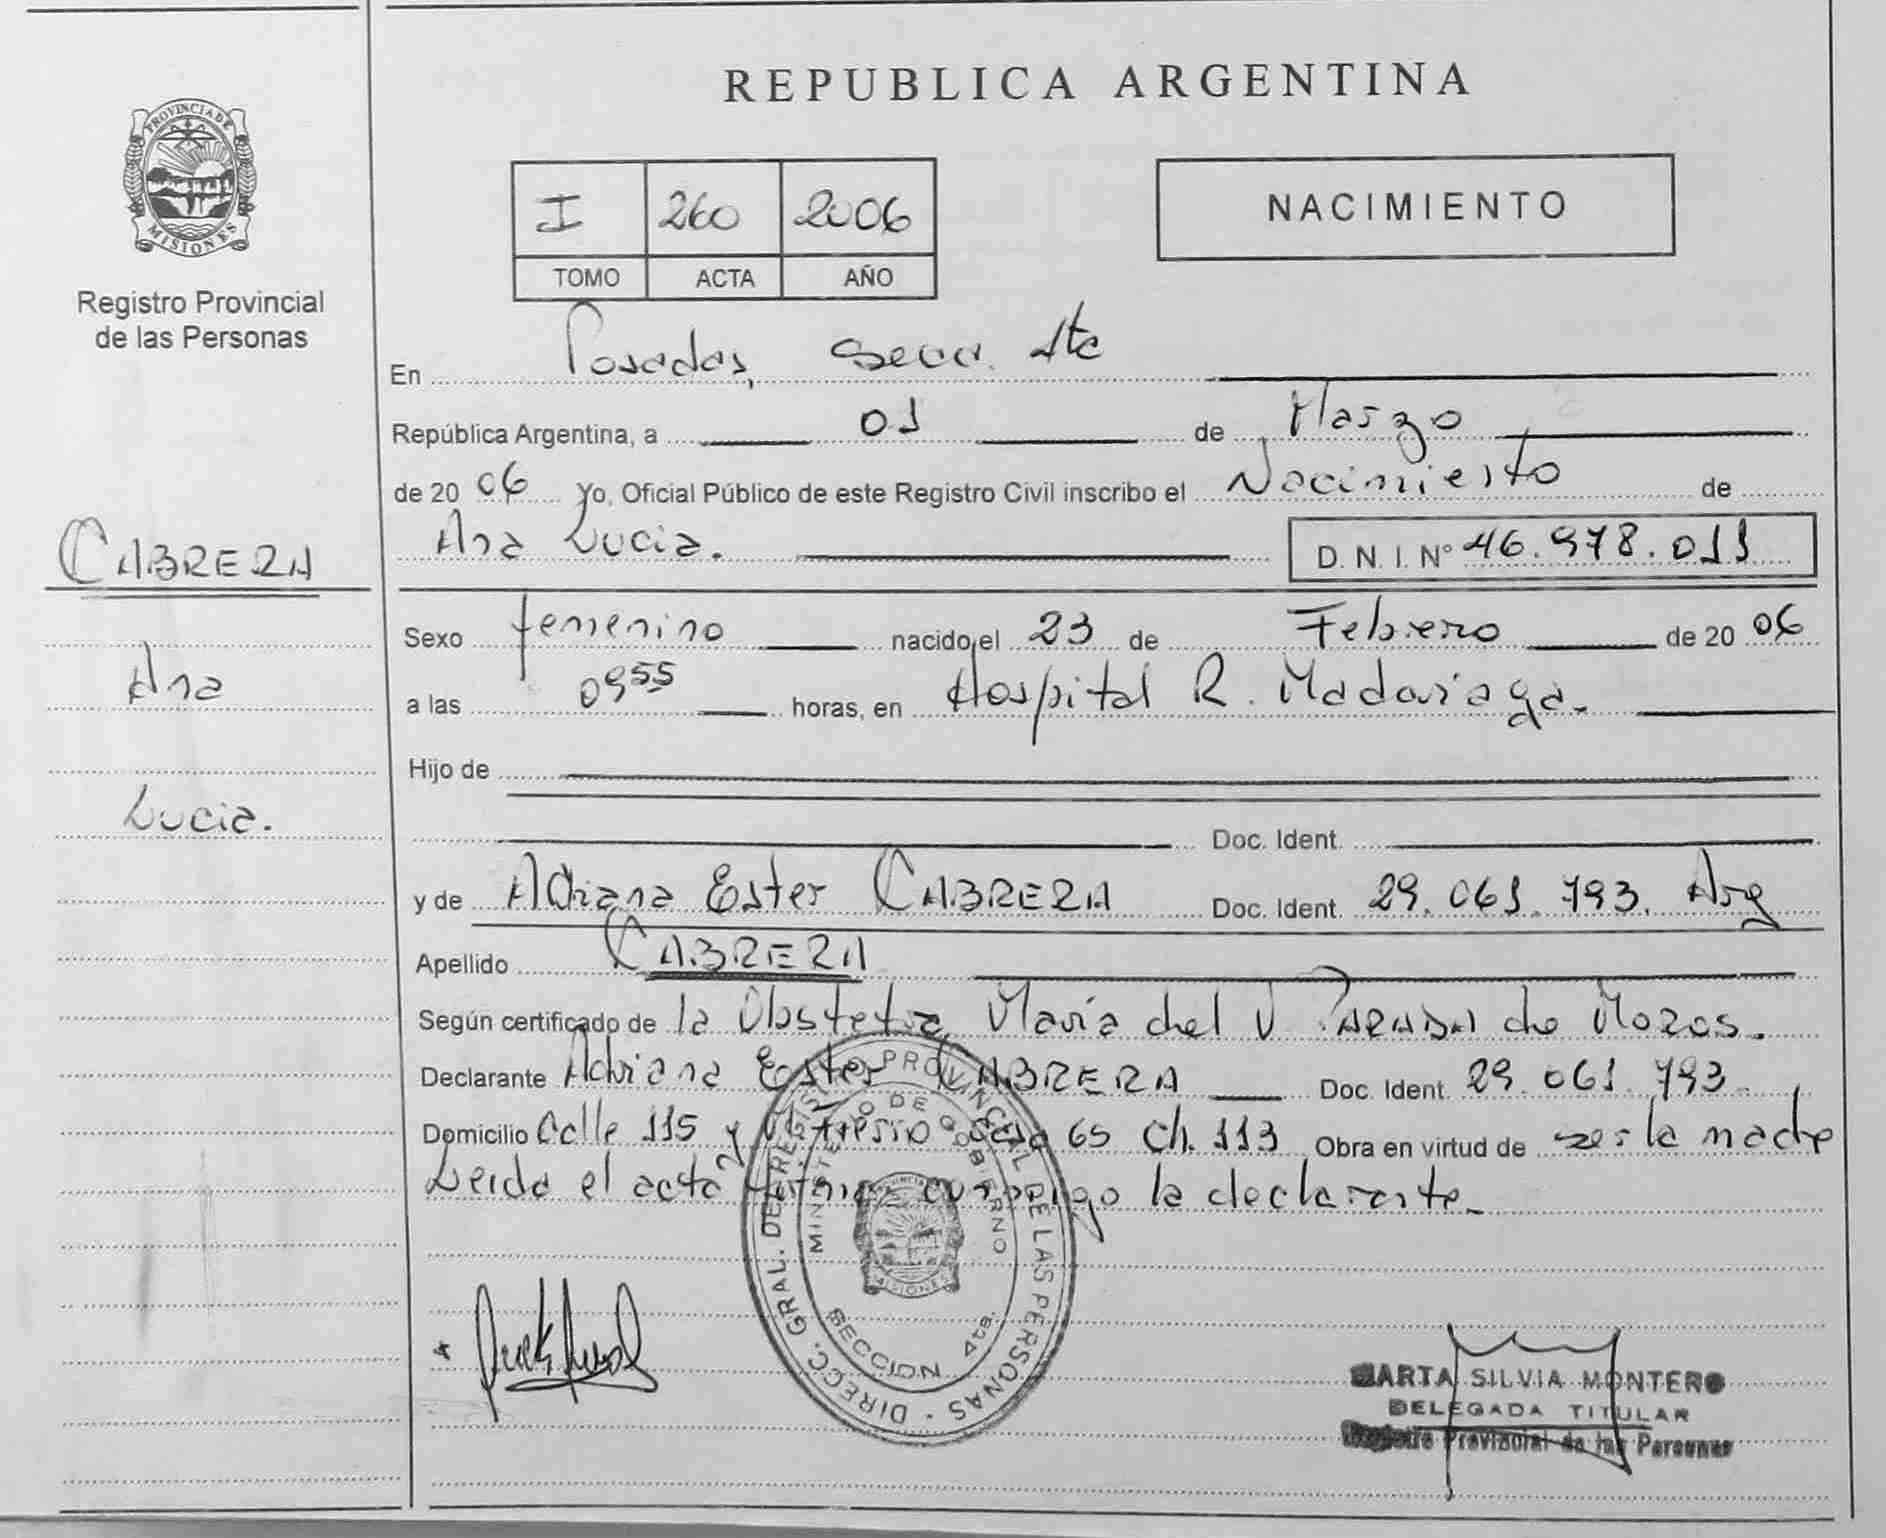 PROVINCIA DE
MISIONES
Registro Provincial
de las Personas
CABRERA
Ana
Lucia.
REPUBLICA ARGENTINA
I 260 2006
TOMO ACTA AÑO
NACIMIENTO
En Posadas, Secc. 4ta
República Argentina, a 01 de Marzo
de 20 06 Yo, Oficial Público de este Registro Civil inscribo el Nacimiento de
Ana Lucia. D. N. I. Nº 46.978.011
Sexo femenino nacido el 23 de Febrero de 20 06
a las 09 55 horas, en Hospital R. Madariaga.
Hijo de
Doc. Ident.
y de Adriana Ester CABRERA Doc. Ident. 29.061.793. Arg
Apellido CABRERA
Según certificado de la Obstetra María del V. PARADA de Moras.
Declarante Adriana Ester CABRERA Doc. Ident. 29.061.793
Domicilio Calle 115 y casa 65 Ch. 113 Obra en virtud de ser la madre
Leida el acta firma conmigo la declarante.
DIRECC. GRAL. DE REGISTRO PROVINCIAL DE LAS PERSONAS
MINISTERIO DE GOBIERNO
MISIONES
SECCION 4ta.
MARTA SILVIA MONTERO
DELEGADA TITULAR
Registro Provincial de las Personas